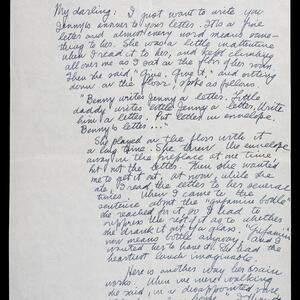 My darling: I just want to write you
Jenny's answer to your letter. It's a fine
letter and almost every word means some-
thing to her. She was a little inattentive
when I read it to her, and kept climbing
all over me as I sat on the floor
Then she said "Give. Give it," and sitting
down on the floor, spoke as follows:
"Benny writes Jenny a letter.
daddy writes Jenny a letter. Write
him a letter. Put letter in envelope.
Benny's letter..."
She played on the floor with it
a long time. She threw the envelope
away in the fireplace at me time
but not the letter. Then she wanted
me to get it at, at now, while she
ate, I read the letter to her several
times. When I came to the
sentence about the "gufumin bottle"
she reached for it, so I had to
suppress the rest of as to whether
she thank it put you glass.
now means bottle anyway, and I
wanted her to have it. She had the
heartiest lunch imaginable.
Here is another way her brain
works. When we were walking
she said, in a